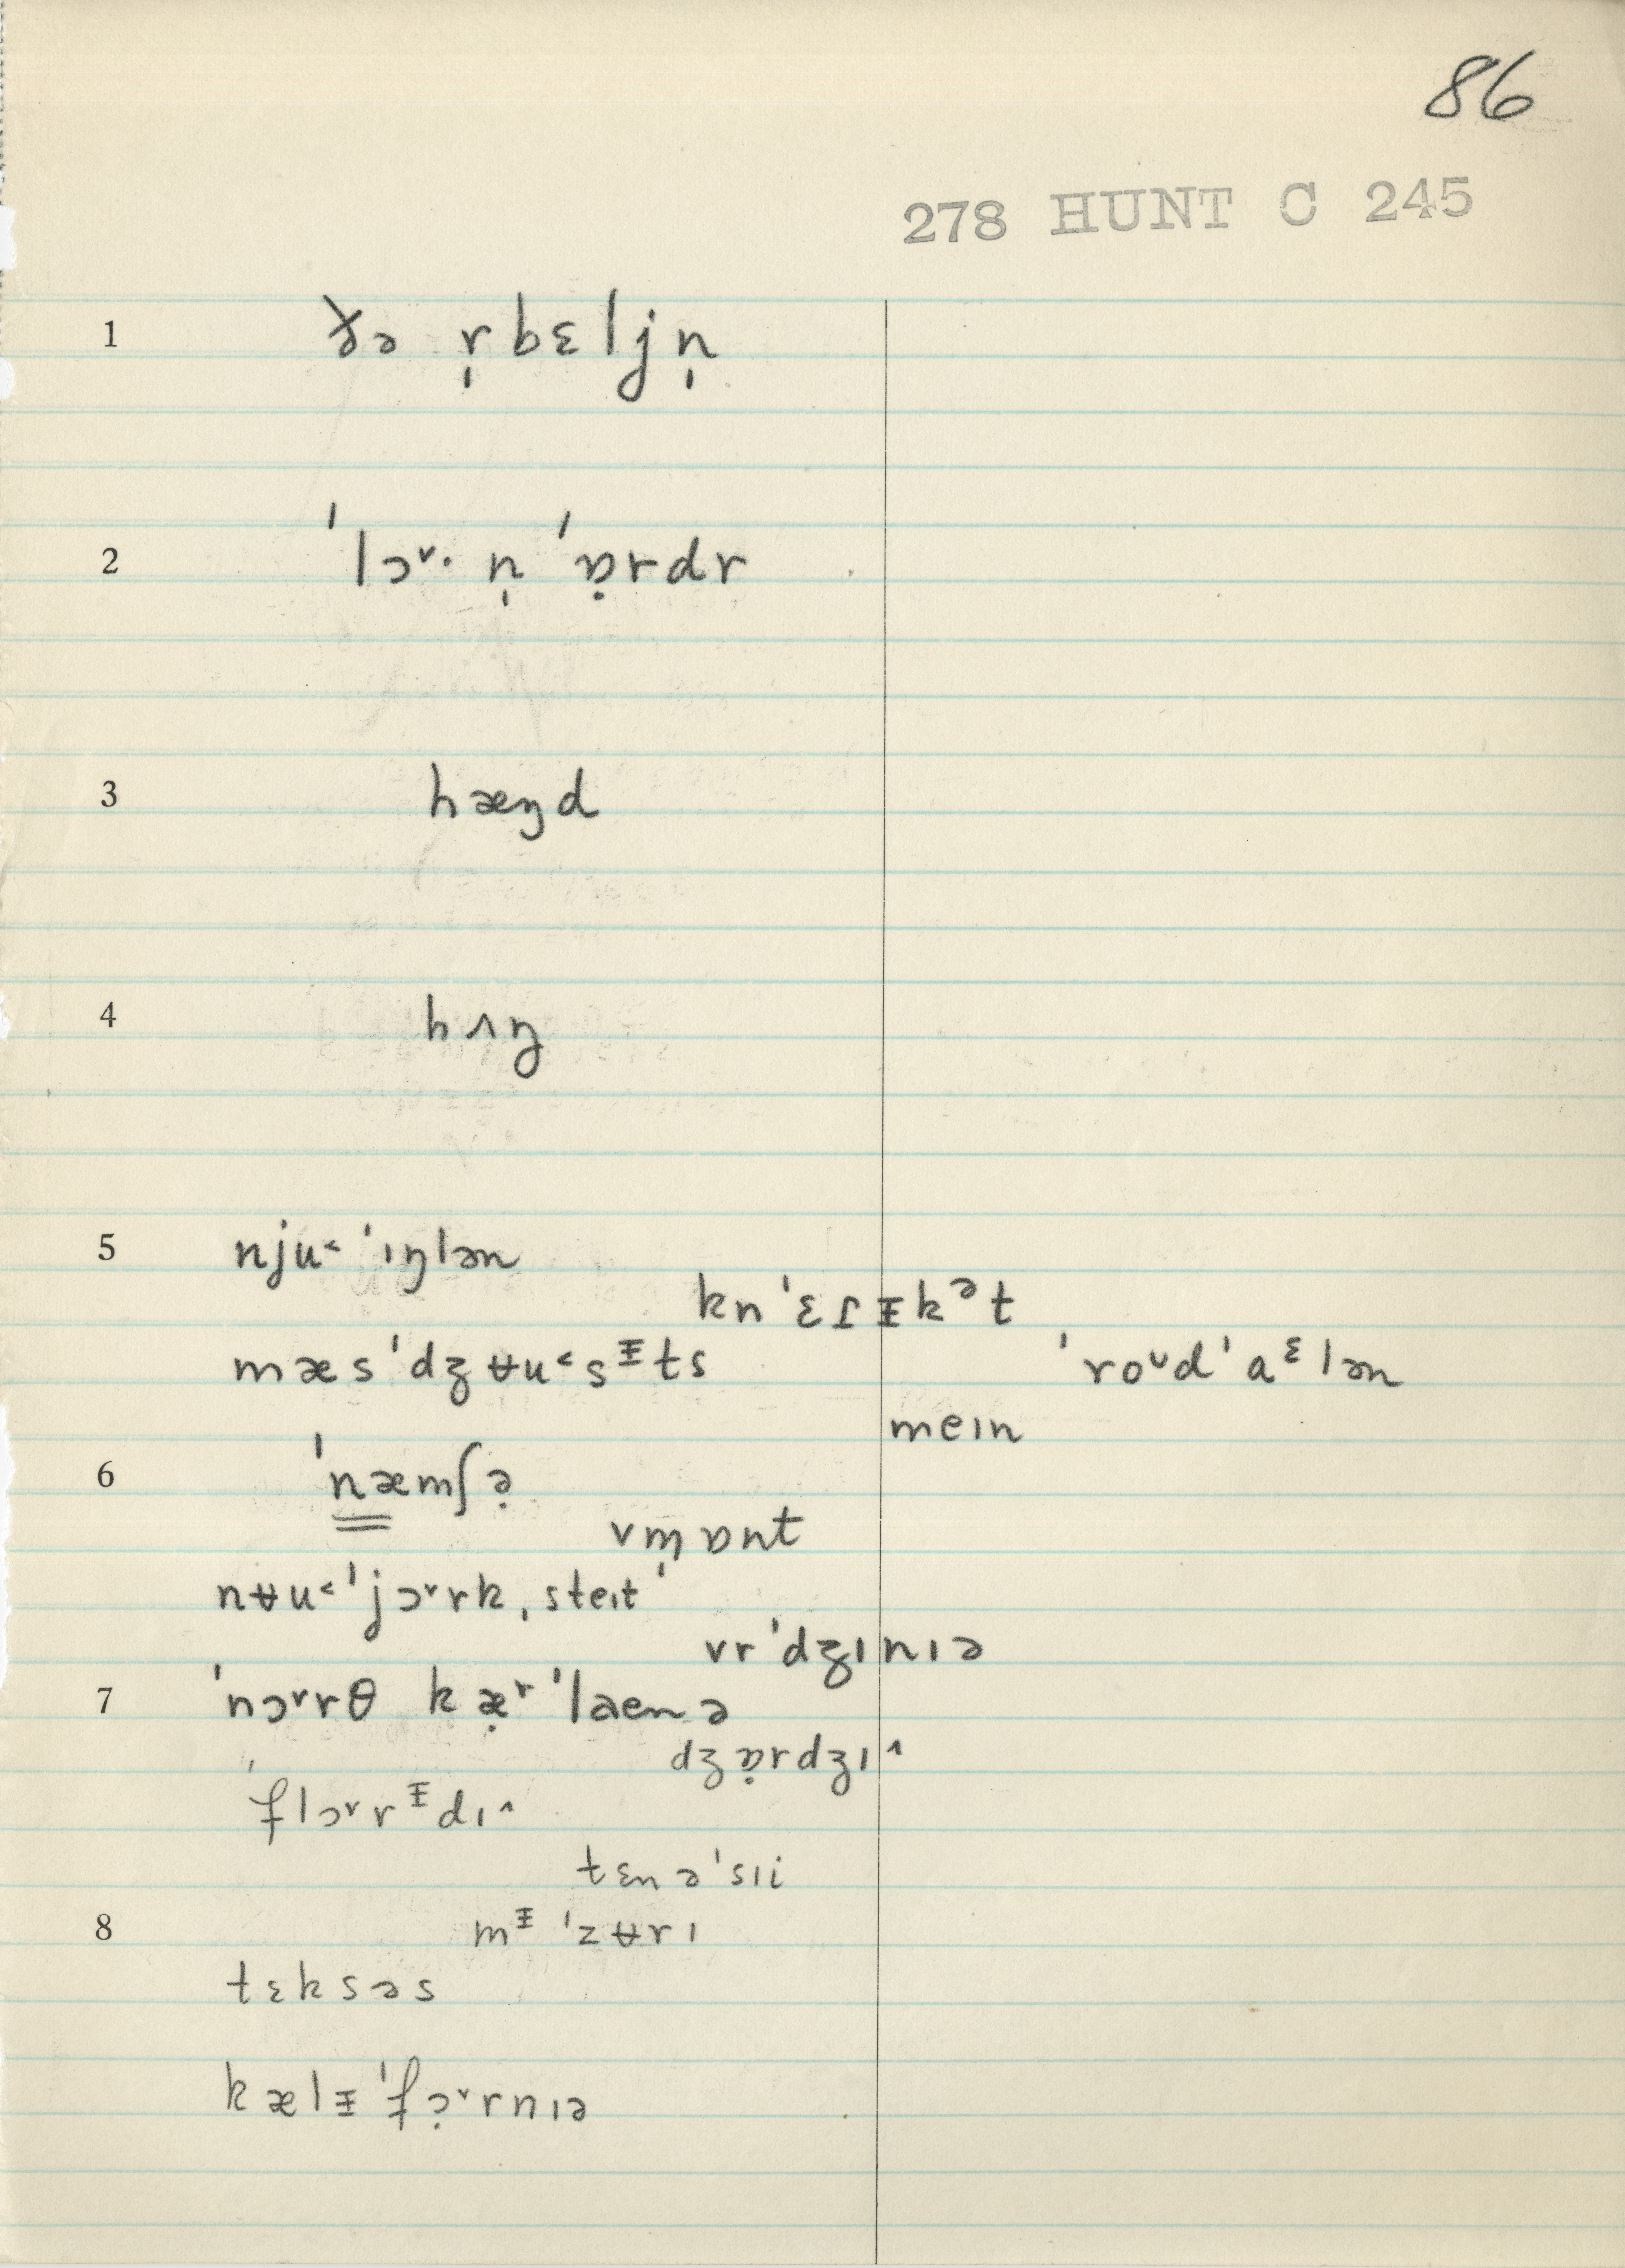 86
278 HUNT C 245
1 ðə r̩bɛljn̩
2 ˈlɔ˅· n̩ ˈɒ̣rdr
3 hæŋd
4 hʌŋ
5 nju˂ ˈɪŋlən
knˈɛɾᵻkᵊt
mæsˈdʒʉu˂sᵻts ˈroᶷdˈaᵋlən
meɪn
6 ˈnæmʃə̣
vm̩ɒnt
nʉu˂ˈjɔ˅rk ˌsteɪtˈ
vrˈdʒɪnɪə
7 ˈnɔ˅rθ kæ̣ʳˈlaenə
dʒɒ̣rdʒɪ˄
ˈflɔ˅rᵻdɪ˄
tɛnəˈsɪi
8 mᵻˈzʉrɪ
tɛksəs
kælᵻˈfɔ̣˅rnɪə